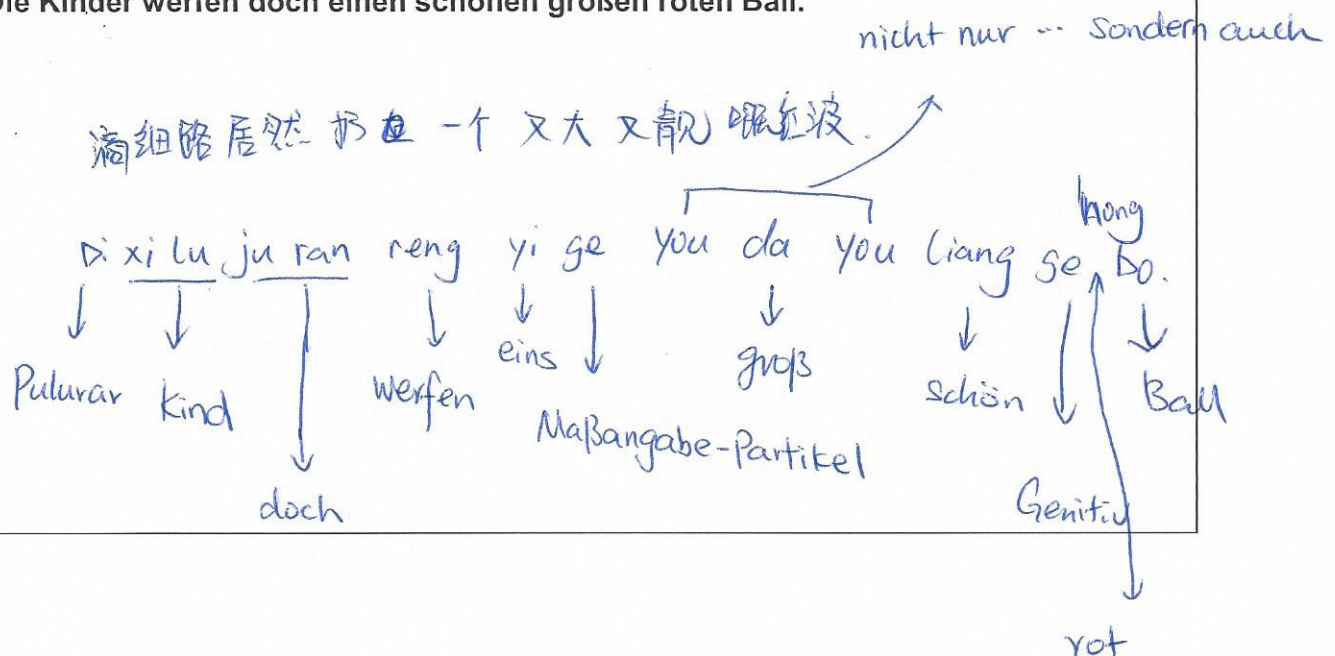 Die Kinder werfen doch einen schönen großen roten Ball.
nicht nur ... sondern auch
滴细路居然扔 一个 又大 又靓 嘅红波.
hong
Di xi lu ju ran reng yi ge you da you liang ge bo.
eins groß
Pulurar kind werfen schön Ball
Maßangabe-Partikel
doch Genitiv
rot